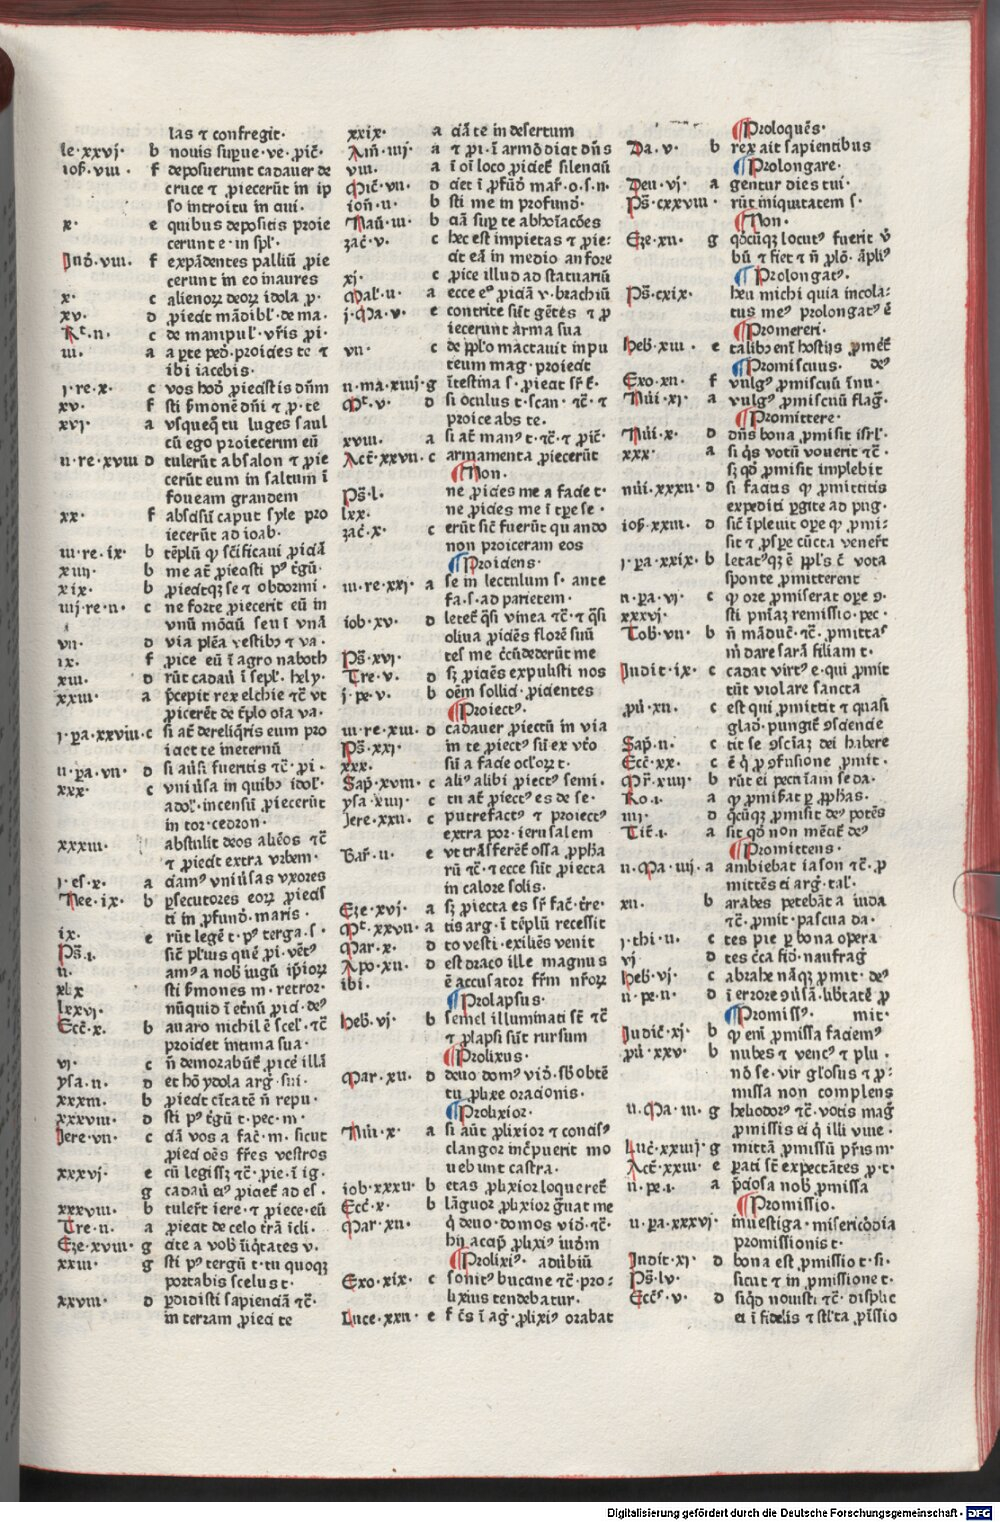 las ⁊ confregit·
le·xxvj· b nouis supue·ve·ꝓiĉ·
iob·viii· f deposuerunt cadauer de
cruce ⁊ ꝓiecerūt in ip
so introitu in aui·
x· e quibus depositis proie
cerunt e·in spl'·
f expādentes palliū ꝓie
cerunt in eo inaures
x· c alienoꝝ deoꝝ idola ꝓ·
xv· d ꝓieĉit mādibl'·de ma·
c de manipul'·vr̄is ꝓi·
iii· a a ꝑte ped·proicies te ⁊
ibi iacebis·
j·re·x· c vos hod ꝓiecistis dūm
xv· f sti ẜmonē dn̄i ⁊ ꝓ·te
xvj· a vsquequ tu luges saul
cū ego proiecerim eū
ii·re·xviii d tulerūt absalon ⁊ ꝓie
cerūt eum in saltum ī
foueam grandem
xx· f abscisū caput syle pro
iecerūt ad ioab·
iii·re·ix· b tēplū ꝙ sc̄ificaui ꝓiciā
xiiij· b me aūt ꝓiecisti pꝰ t̄gū·
xix· b se ⁊ obdormi·
iiij·re·ii· c ne forte ꝓiecerit eū in
vnū mōciū seu ī vnā
vii· d via plēa vestibꝫ ⁊ va·
ix· f ꝓice eū ī agro naboth
xiii· d rūt cadau ī sepl'·hely·
xxiii· a p̄cepit rex elchie t̄c̄ vt
ꝓicerēt de t̄plo oīa va·
j·pa·xxviii·c si aūt dereliq̄ris eum pro
iaet te ineternū
ii·pa·vii· d si auſi fueritis t̄c̄·ꝓi·
xxx· c vniūsa in quibꝫ idol'·
adol·incensū ꝓiecerūt
in tor·cedron·
xxxiii· abstulit deos aliēos t̄c̄
⁊ ꝓiecit extra vrbem·
j·es·x· a ciamꝰ vniūsas vxores
Nee·ix· b ꝑsecutores eoꝝ ꝓiecis
ti in ꝓfund·maris·
ix· e rūt legē t·pꝰ terga·s·
Ps̄·i· sic̄ plūus quē ꝓi·vētꝰ
ii· amꝰ a nob iugū ip̄ioꝝ
xlix sti ẜmones m·retror·
lxxvj· nūquid ī et̄nū ꝓici·deꝰ
Ecc̄·x· b auaro nichil ē scel'·t̄c̄
proiciet intima sua·
vj· c n̄ demorabūt ꝓice illā
ysa·ii· d et hō ydola arḡ·sui·
xxxiii· b ꝓiecit ciītatē n̄ repu·
xxxviii· d sti pꝰ t̄gū t·pec·m·
Jere·vii· c ciā vos a fac̄·m·sicut
ꝓieci oēs fr̄es vestros
xxxvj· e cū legissꝫ t̄c̄·ꝓie·ī ig·
g cadau eiꝰ ꝓiceret ad es·
xxxviii· b tulert iere·⁊ ꝓiece·eū
Tre·ii· a ꝓiecit de celo t̄rā icli·
Eze·xviii· g cite a vob īiqtates v·
xxiii· g sti pꝰ tergū t·tu quoqꝫ
portabis scelus t·
xxviii· d ꝑdidisti sapienciā t̄c̄·
in terram ꝓieci te
xxix· a ciā te in desertum
Am̄·iiij· a ⁊ ꝓi·ī armō diat dn̄s
viii· a ī oī loco ꝓiciet silenciū
Mic̄·vii· d ciet ī ꝓfūd mar̄·o·s·n·
ion̄·ii· b sti me in profund·
Nau·iii· b ciā suꝑ te abhoīacōes
zac̄·v· c hec est impietas ⁊ ꝓie·
cit eā in medio anfore
xj· c ꝓice illud ad statuariū
Mal'·ii· a ecce eꝰ ꝓiciā v·brachiū
j·Ma·v· e contrite sūt gētes ⁊ ꝓ
iecerunt arma sua
vii· c de pplo mactauit in pu
teum mag·proiecit
ii·ma·xiiij·g ītestina s·ꝓiecit sr̄ ·
Mt·v· d si oculus t·scan·t̄c̄·⁊
proice abs te·
xviii· a si aūt manꝰ t·t̄c̄·⁊ ꝓic̄·
Act̄·xxvii·c armamenta ꝓiecerūt
Non·
Ps̄·l· ne ꝓicies me a facie t·
lxx· ne ꝓicies me ī tꝑe se·
zac̄·x· c erūt sic̄ fuerūt quando
non proiceram eos
Proiciens·
iii·re·xxj· a se in lectulum s·ante
fa·s·ad parietem·
iob·xv· d letet qsi vinea t̄c̄·⁊ qsi
oliua ꝓiciēs florē suū
Ps̄·xvj· tes me circūdederūt me
Tre·v· d sꝫ ꝓiciēs expulisti nos
j·pe·v· b oēm sollici·ꝓicientes
Proiectꝰ·
iii·re·xiii·d cadauer ꝓiectū in via
Ps̄·xxj· in te ꝓiectꝰ sū ex vt̄o
xxx· sū a facie ocl'oꝝ t·
Sap̄·xviii· c aliꝰ alibi ꝓiectꝰ semi·
ysa·xiiij· c tu aūt ꝓiectꝰ es de se·
Jere·xxii· c putrefactꝰ ⁊ proiectꝰ
extra por·ierusalem
Bar̄·ii· e vt trāsferēt ossa ꝓph̄a
rū t̄c̄·⁊ ecce sūt ꝓiecta
in calore solis·
Eze·xvj· a sꝫ ꝓiecta es sr̄ fac̄·t̄re·
Mt·xxvii·a tis arg·ī tēplū recessit
Mar·x· d to vesti·exiliēs venit
Apo·xii· d est draco ille magnus
ibi· ē accusator fr̄m nr̄oꝝ
Prolapsus·
heb̄·vj· b semel illuminati sūt t̄c̄
⁊ ꝓlapsi sūt rursum
Prolixus·
Mar·xii· d deuo domꝰ vid·sb obtē
tu ꝓlixe oracionis·
Prolixior·
Nūi·x· a si aūt ꝓlixior ⁊ concisꝰ
clangor inc̄puerit mo
uebunt castra·
iob·xxxii· b etas ꝓlixior loqueret
Ecc̄·x· b lāguor ꝓlixior ḡuat me
Mar·xii· q̄ deuo·domos vid·t̄c̄·
hij acap̄ ꝓlixiꝰ iudm
Prolixiꝰ· aduerbiū
Exo·xix· c sonitꝰ bucane t̄c̄·pro·
lixius tendebatur·
Luce·xxii· e f c̄s ī ag·ꝓlixiꝰ orabat
Proloquēs·
Da·v· b rex ait sapientibus
Prolongare·
Deu·vj· a gentur dies tui·
Ps̄·cxxviii· rūt iniquitatem s·
Non·
Eze·xii· g qdcūqꝫ locutꝰ fuerit v̄
bū ⁊ fiet ⁊ n̄ ꝓlō·āpliꝰ
Prolongatꝰ·
Ps̄·cxix· heu michi quia incola·
tus meꝰ prolongatꝰ ē
Promereri·
heb̄·xiii· e talibꝫ enī hostijs ꝓmet
Promiscuus· deꝰ
Exo·xii· f vulgꝰ ꝓmiscuū īnu·
Nūi·xj· a vulgꝰ ꝓmiscuū flag·
Promittere·
Nūi·x· d dn̄s bona ꝓmisit isrl'·
xxx· a si qs votū vouerit t̄c̄·
sꝫ qd ꝓmisit implebit
nūi·xxxii· d si facitis qd ꝓmittitis
expediti ꝑgite ad pug·
iob·xxiii· d sic̄ īpleuit oꝑe qd ꝓmi·
sit ⁊ ꝓsꝑe cūcta venert
j·pa·xxix· b letatꝰqꝫ ē ppl's c̄ vota
sponte ꝓmitterent
ii·pa·vj· c qd ore ꝓmiserat oꝑe ꝯ·
xxxvj· sti pnīaꝫ remissio·pec·
Tob·vii· b n̄ māduc̄·t̄c̄·ꝓmittas
m̄ dare sarā filiam t·
Judit·ix· c cadat virtꝰ e·qui ꝓmit
tūt violare sancta
ꝓū·xii· c est qui ꝓmittit ⁊ quasi
glad·pungit ꝯsciencie
Sap̄·ii· c tit se ꝯsciaꝫ dei habere
Ecc̄·xx· c ē q ꝓ ꝯfusione ꝓmit·
b rūt ei pecunīam se da·
Ro·i· a qd ꝓmiẜat ꝑ ꝓph̄as·
iiij· d qcūqꝫ ꝓmisit deꝰ potēs
Tit·i· a sit qd non mētit deꝰ
Promittens·
ii·Ma·iiij·a ambiebat iason t̄c̄·ꝓ
mittēs ei arg·tal'·
xii· b arabes petebāt a iuda
t̄c̄·ꝓmit·pascua da·
j·thi·ii· c tes pie ꝑ bona opera
vj d tes c̄ca fid·naufrag
heb̄·vj· c abrahe nāqꝫ ꝓmit·deꝰ
ii·pe·ii· d ī errore ꝯūsā·lib̄tatē ꝓ
Promissꝰ· mit·
Judic̄·xj· b qd enī ꝓmissa faciemꝰ
ꝓū·xxv· b nubes ⁊ vētꝰ ⁊ plu·
nō se·vir glosus ⁊ ꝓ·
missa non complens
ii·Ma·iii· g heliodorꝰ t̄c̄·votis mag
ꝓmissis ei q illi viue·
Luc̄·xxiiij·g mittā ꝓmissū pr̄is m·
Act̄·xxiii· e ꝑati sūt expectātes ꝓ·t·
ii·pe·i· a p̄ciosa nob ꝓmissa
Promissio·
ii·pa·xxxvj· inuestiga·misericordia
promissionis t·
Judit·xj· d bona est ꝓmissio t·si·
Ps̄·lv· sicut ⁊ in ꝓmissione t·
Ecc̄s·v· d siqd nouisti t̄c̄·displic
ei ī fidelis ⁊ stl'ta ꝓmissio
Digitalisierung gefördert durch die Deutsche Forschungsgemeinschaft - DFG